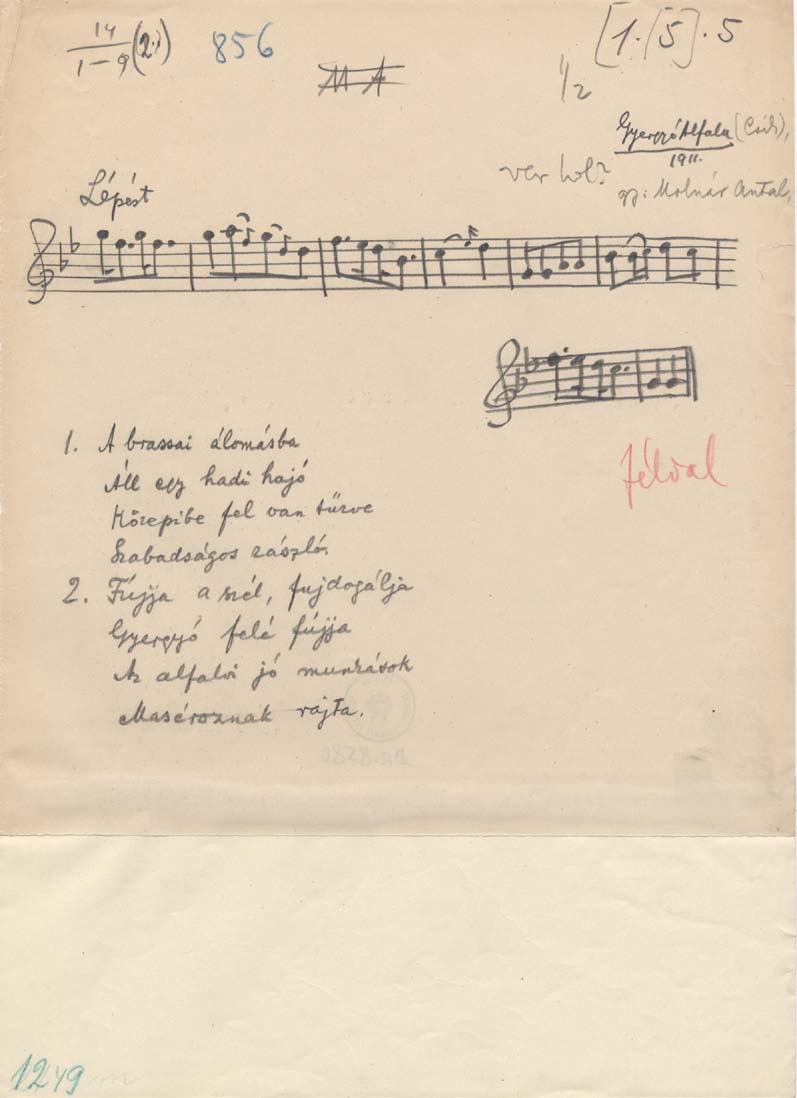 14
1-9 (2.)
856
[1.(5].5
M A
1/2
Gyergyó Alfalu (Csík),
1911.
gy: Molnár Antal.
Lépést
félval
1. A brassai álomásba
Áll egy hadi hajó
Közepibe fel van tűzve
Szabadságos zászló.
2. Fújja a szél, fujdogálja
Gyergyó felé fújja
Az alfalvi jó munkások
Maséroznak rajta.
1249